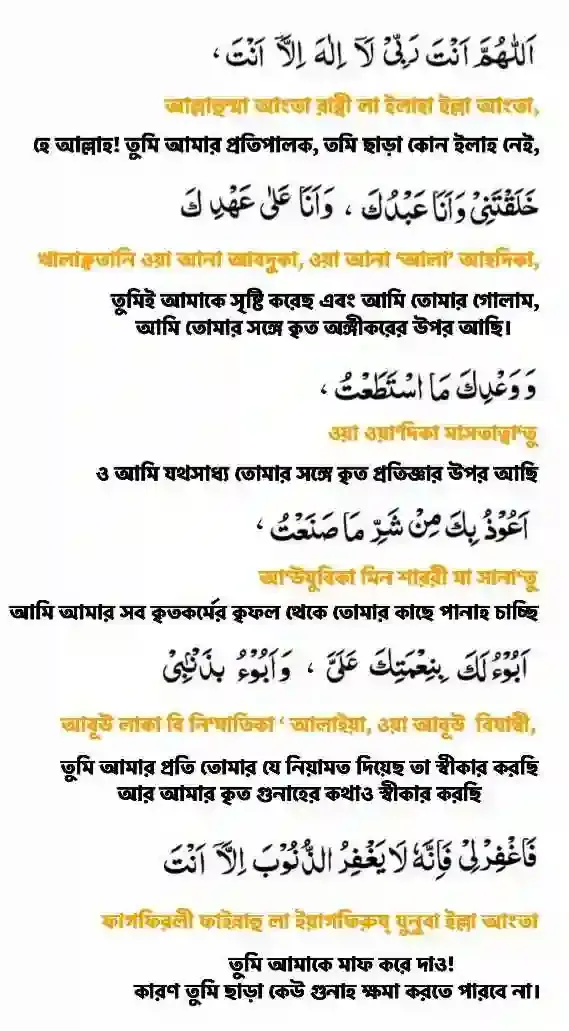 اَللّٰهُمَّ اَنْتَ رَبِّىْ لَآ اِلٰهَ اِلَّآ اَنْتَ ،
আল্লাহুম্মা আংতা রাব্বী লা ইলাহা ইল্লা আংতা,
হে আল্লাহ! তুমি আমার প্রতিপালক, তমি ছাড়া কোন ইলাহ নেই,
خَلَقْتَنِىْ وَاَنَا عَبْدُكَ ، وَاَنَا عَلٰى عَهْدِ كَ
খালাক্বতানি ওয়া আনা আবদুকা, ওয়া আনা ‘আলা’ আহদিকা,
তুমিই আমাকে সৃষ্টি করেছ এবং আমি তোমার গোলাম,
আমি তোমার সঙ্গে কৃত অঙ্গীকরের উপর আছি।
وَ وَعْدِكَ مَا اسْتَطَعْتُ ،
ওয়া ওয়া’দিকা মাসতাত্বা’তু
ও আমি যথসাধ্য তোমার সঙ্গে কৃত প্রতিজ্ঞার উপর আছি
اَعُوْذُ بِكَ مِنْ شَرِّ مَا صَنَعْتُ ،
আ‘উযুবিকা মিন শাররী মা সানা’তু
আমি আমার সব কৃতকর্মের কৃফল থেকে তোমার কাছে পানাহ চাচ্ছি
اَبُوْءُ لَكَ بِنِعْمَتِكَ عَلَىَّ ، وَاَبُوْءُ بِذَنْۢبِىْ
আবূউ লাকা বি নি‘মাতিকা ‘ আলাইয়া, ওয়া আবূউ বিযাম্বী,
তুমি আমার প্রতি তোমার যে নিয়ামত দিয়েছ তা স্বীকার করছি
আর আমার কৃত গুনাহের কথাও স্বীকার করছি
فَاغْفِرْلِىْ فَاِنَّهٗ لَا يَغْفِرُ الذُّنُوْبَ اِلَّآ اَنْتَ
ফাগফিরলী ফাইন্নাহু লা ইয়াগফিরুয্ যুনূবা ইল্লা আংতা
তুমি আমাকে মাফ করে দাও!
কারণ তুমি ছাড়া কেউ গুনাহ ক্ষমা করতে পারবে না।